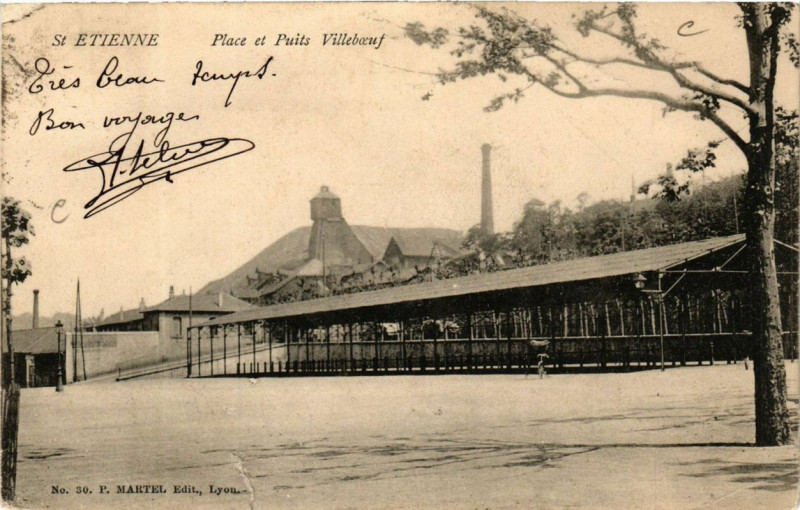 St ETIENNE Place et Puits Villebœuf
Très beau temps.
Bon voyage
C
C
No. 30. P. MARTEL Edit., Lyon.